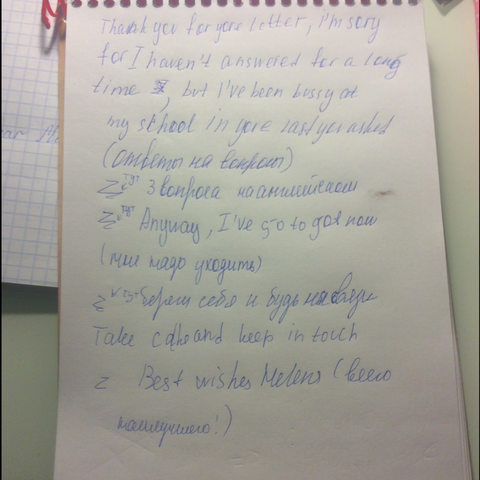 Thank you for youre letter, i'm sory
for I haven't answered for a long
time , but I've been bussy at
my school in yore last you asked
(ответы на вопросы)
Z тут 3 вопроса на английском
Z тут Anyway, I've go to got now
(мне надо уходить)
Z тут береги себя и будь на связи
Take care and keep in touch
Z Best wishes Melens (всего
наилучшего!)